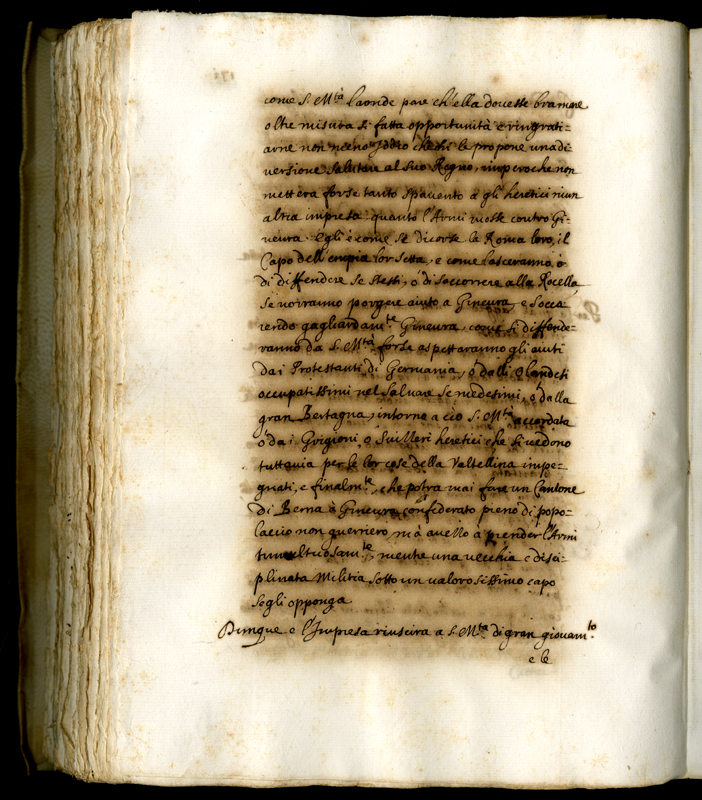 come S. M.tà laonde pare ch'ella dovesse bramare
oltre misura si fatta opportunità e ringrati=
arne non meno Iddio che le propone una di
versione salutare al suo Regno, imperoche non
metterà forse tanto spavento a gli heretici niun
altra impresa quanto l'Armi mosse contro Gi=
nevra. egli è come se dicosse la Roma loro, il
Capo dell'empia lor setta, e come lasceranno o
di diffendere se stessi, ò di soccorrere alla Rocella
se vorranno porgere aiuto a Ginevra, e socca
rendo gagliardam.te Ginevra, come si diffende=
ranno da S. M.tà forse aspettaranno gli aiuti
dai Protestanti di Germania, ò dalli Olandesi
occupatissimi nel salvare se medesimi, ò dalla
gran Bertagna, intorno a ciò S. M.tà accordata
ò dai Grigioni, o Suizzeri heretici che si vedono
tuttavia per le lor cose della Valtellina impe=
gnati, e finalm.te, che potrà mai fare un Cantone
di Berna à Ginevra confiderato pieno di popo=
laccio non guerriero, mà avezzo a prender l'Armi
tumultuosam.te, mentre una vecchia e disci=
plinata Militia sotto un valorosissimo capo
segli opponga
Dunque e l'Impresa riuscirà a S. M.tà di gran giovam.to
e le